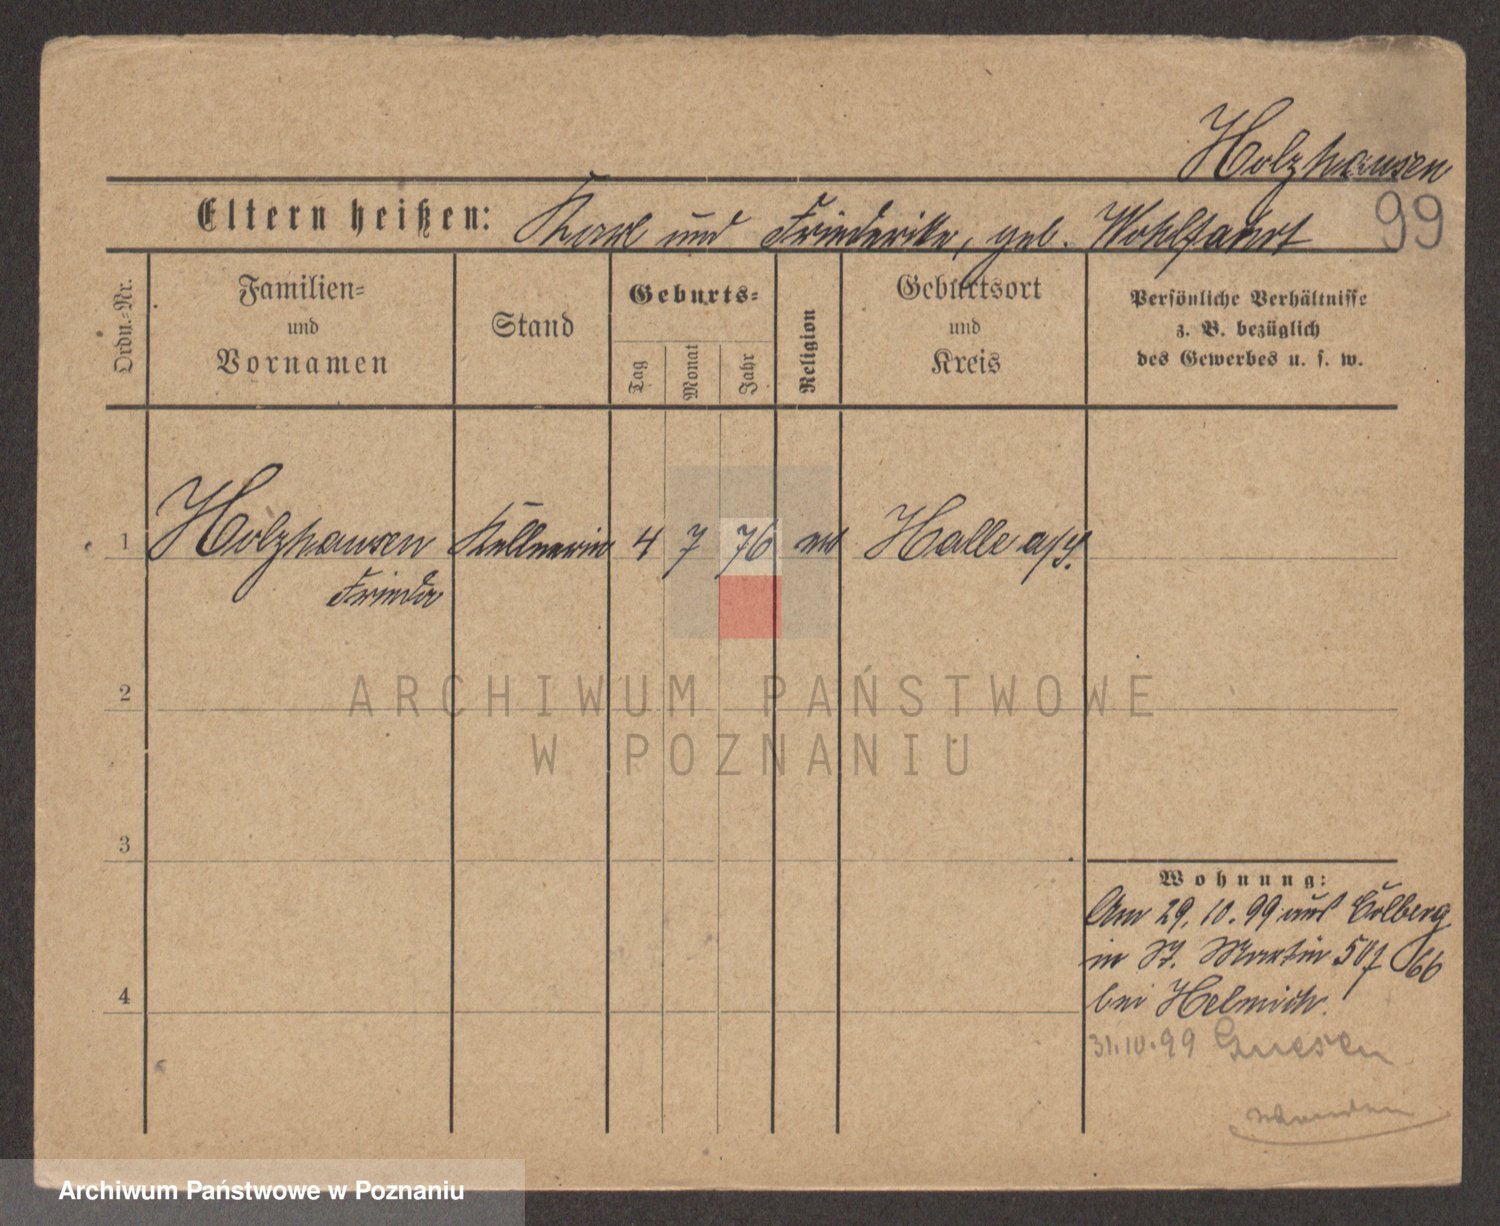 Holzhausen
Eltern heißen: Karl und Friederike, geb. Wohlfahrt 99
Ordn.=Nr.
Familien=
und
Vornamen
Stand
Geburts=
Tag
Monat
Jahr
Religion
Geburtsort
und
Kreis
Persönliche Verhältnisse
z. B. bezüglich
des Gewerbes u. s. w.
1 Holzhausen Kellnerin 4 7 76 ev Halle a/S.
Frieda
2
ARCHIWUM PAŃSTWOWE
W POZNANIU
3
Wohnung:
Am 29.10.99 aus Colberg
in St. Martin 507 66
bei Helmich.
4
31.10.99 Gnesen
Archiwum Państwowe w Poznaniu